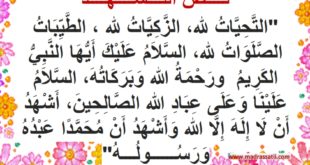 نص التشهد
"التَّحِيَّاتُ لله، الزَّكِيَّاتُ لله ، الطَّيِّبَاتُ
الصَّلَوَاتُ لله، السَّلاَمُ عَلَيْكَ أَيُّهَا النَّبِيُّ
الكَرِيمُ وَرَحْمَةُ الله وَبَرَكَاتُهُ، السَّلاَمُ
عَلَيْنَا وَعَلَى عِبَادِ الله الصَّالِحِين، أَشْهَدُ
أَنْ لاَ إِلَهَ إِلاَّ الله وَأَشْهَدُ أَنَّ مُحَمَّدًا عَبْدُهُ
وَرَسُـولُـهُ"
www.madrassatii.com